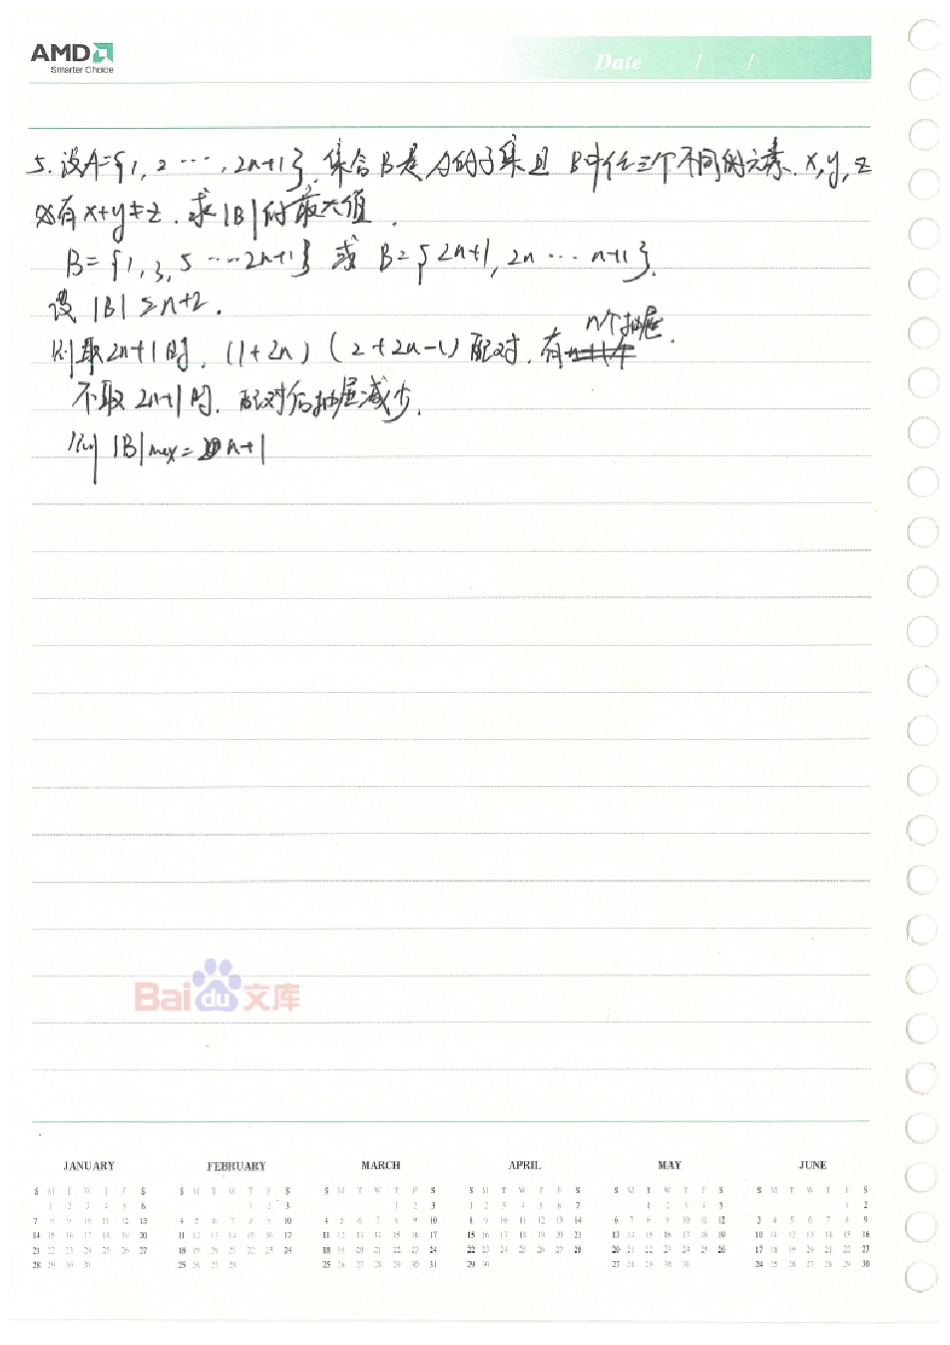 AMD
Smarter Choice
Date / /
5. 设A={1, 2 …, 2n+1}, 集合B是A的子集且 B中任三个不同的元素, x, y, z
均有 x+y≠z. 求|B|的最大值.
B={1, 3, 5 …2n+1} 或 B={2n+1, 2n … n+1}.
设 |B|≥n+2.
则取2n+1时, (1+2n) (2+2n-1) 配对, 有n个抽屉.
不取2n+1时, 配对后抽屉减少.
则|B|max=n+1
Baidu文库
JANUARY FEBRUARY MARCH APRIL MAY JUNE
S M T W T F S S M T W T F S S M T W T F S S M T W T F S S M T W T F S S M T W T F S
1 2 3 4 5 6 1 2 3 1 2 3 1 2 3 4 5 6 7 1 2 3 4 5 1 2
7 8 9 10 11 12 13 4 5 6 7 8 9 10 4 5 6 7 8 9 10 8 9 10 11 12 13 14 6 7 8 9 10 11 12 3 4 5 6 7 8 9
14 15 16 17 18 19 20 11 12 13 14 15 16 17 11 12 13 14 15 16 17 15 16 17 18 19 20 21 13 14 15 16 17 18 19 10 11 12 13 14 15 16
21 22 23 24 25 26 27 18 19 20 21 22 23 24 18 19 20 21 22 23 24 22 23 24 25 26 27 28 20 21 22 23 24 25 26 17 18 19 20 21 22 23
28 29 30 31 25 26 27 28 25 26 27 28 29 30 31 29 30 27 28 29 30 31 24 25 26 27 28 29 30